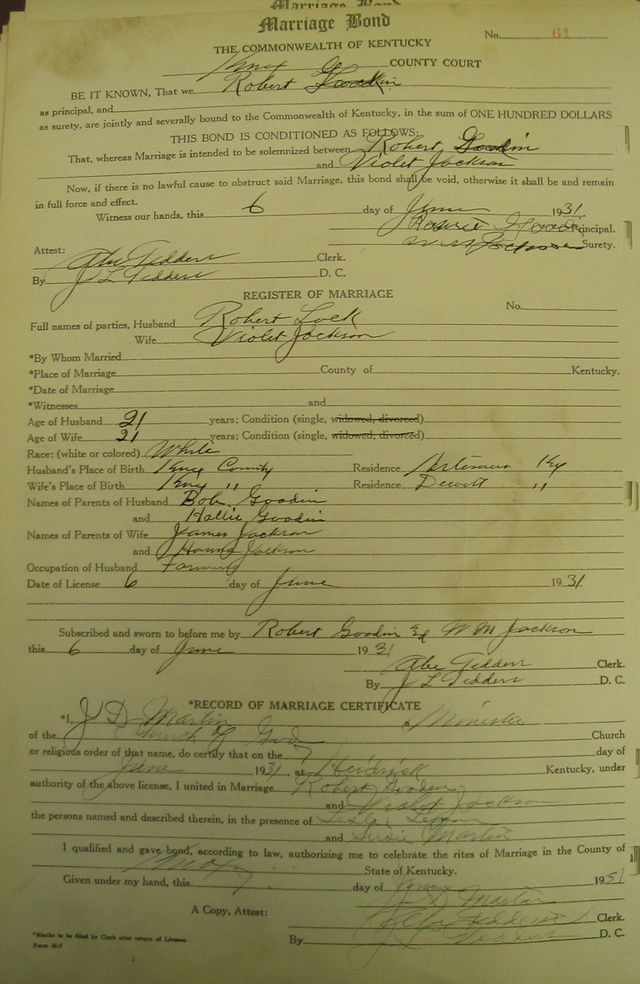 Marriage Bond
Marriage Bond
No. 61
THE COMMONWEALTH OF KENTUCKY
Knox COUNTY COURT
BE IT KNOWN, That we Robert Goodin
as principal, and
as surety, are jointly and severally bound to the Commonwealth of Kentucky, in the sum of ONE HUNDRED DOLLARS
THIS BOND IS CONDITIONED AS FOLLOWS:
That, whereas Marriage is intended to be solemnized between Robert Goodin
and Violet Jackson
Now, if there is no lawful cause to obstruct said Marriage, this bond shall be void, otherwise it shall be and remain
in full force and effect.
Witness our hands, this 6 day of June 1931
Principal.
W M Jackson Surety.
Attest:
Abe Tedders Clerk.
By J L Tedders D. C.
REGISTER OF MARRIAGE
No.
Full names of parties, Husband Robert
Wife Violet Jackson
*By Whom Married
*Place of Marriage County of Kentucky.
*Date of Marriage
*Witnesses and
Age of Husband 21 years; Condition (single, widowed, divorced)
Age of Wife 21 years; Condition (single, widowed, divorced)
Race: (white or colored) White
Husband's Place of Birth Knox County Residence Artemus Ky
Wife's Place of Birth Knox " Residence Dewitt "
Names of Parents of Husband Bob Goodin
and Hallie Goodin
Names of Parents of Wife James Jackson
and Jackson
Occupation of Husband Farming
Date of License 6 day of June 1931
Subscribed and sworn to before me by Robert Goodin & W M Jackson
this 6 day of June 1931
Abe Tedders Clerk.
By J L Tedders D. C.
*RECORD OF MARRIAGE CERTIFICATE
*I, J D Martin a Minister
of the Church of God Church
or religious order of that name, do certify that on the 7 day of
June 1931, at Heidrick Kentucky, under
authority of the above license, I united in Marriage Robert Goodin
and Violet Jackson
the persons named and described therein, in the presence of
and Susie Martin
I qualified and gave bond, according to law, authorizing me to celebrate the rites of Marriage in the County of
Knox State of Kentucky.
Given under my hand, this day of 1931
J D Martin
A Copy, Attest: Clerk.
By Tedders D. C.
*Blanks to be filled by Clerk after return of License.